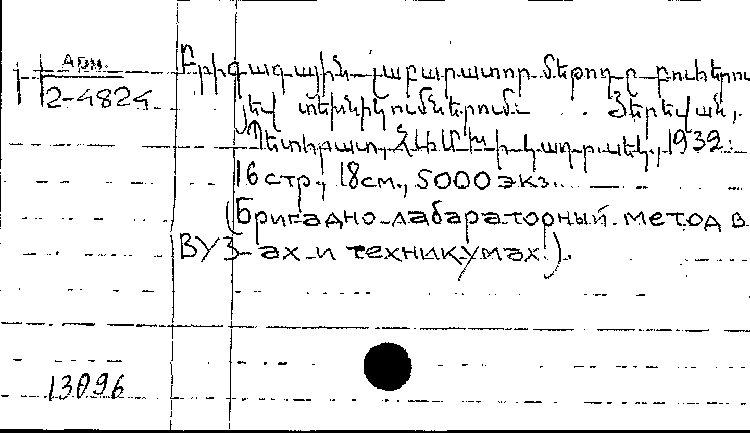 Арм.
2-4824
Բրիգադային-լաբարատոր մեթոդը բուհերու
յեվ տեխնիկումներում: . . Յերեվան,
Պետհրատ, 1932:
16 стр., 18см., 5000 экз.
(Бригадно-лабараторный метод в
ВУЗ-ах и техникумах.).
13096